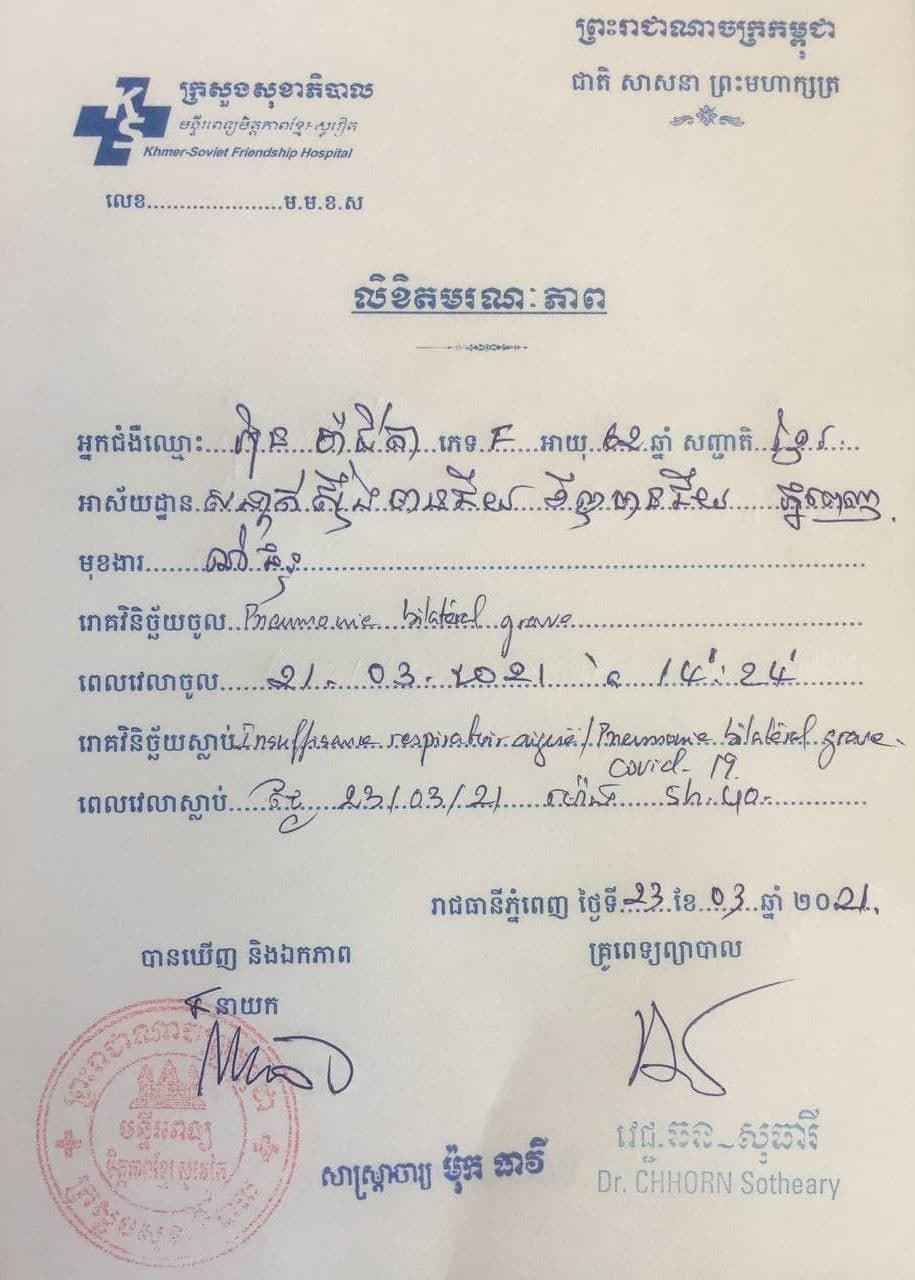 ព្រះរាជាណាចក្រកម្ពុជា
ជាតិ សាសនា ព្រះមហាក្សត្រ
ក្រសួងសុខាភិបាល
មន្ទីរពេទ្យមិត្តភាពខ្មែរ-សូវៀត
Khmer-Soviet Friendship Hospital
លេខ......................ម.ម.ខ.ស
លិខិតមរណៈភាព
អ្នកជំងឺឈ្មោះ ភេទ F អាយុ ឆ្នាំ សញ្ជាតិ ខ្មែរ
អាស័យដ្ឋាន ស្ទឹងមានជ័យ មានជ័យ ភ្នំពេញ
មុខងារ
រោគវិនិច្ឆ័យចូល Pneumonie bilatéral grave
ពេលវេលាចូល 21. 03. 2021 à 14: 24
រោគវិនិច្ឆ័យស្លាប់ Insuffisance respiratoir aiguë / Pneumonie bilatéral grave
Covid-19
ពេលវេលាស្លាប់ ថ្ងៃ 23/03/21 ម៉ោង 5h.40
រាជធានីភ្នំពេញ ថ្ងៃទី 23 ខែ 03 ឆ្នាំ ២០21
បានឃើញ និងឯកភាព
គ្រូពេទ្យព្យាបាល
នាយក
ព្រះរាជាណាចក្រកម្ពុជា
មន្ទីរពេទ្យ
មិត្តភាពខ្មែរ សូវៀត
ក្រសួងសុខាភិបាល
សាស្ត្រាចារ្យ ម៉ុក ធាវី
វេជ្ជ. ឆន សុធារី
Dr. CHHORN Sotheary